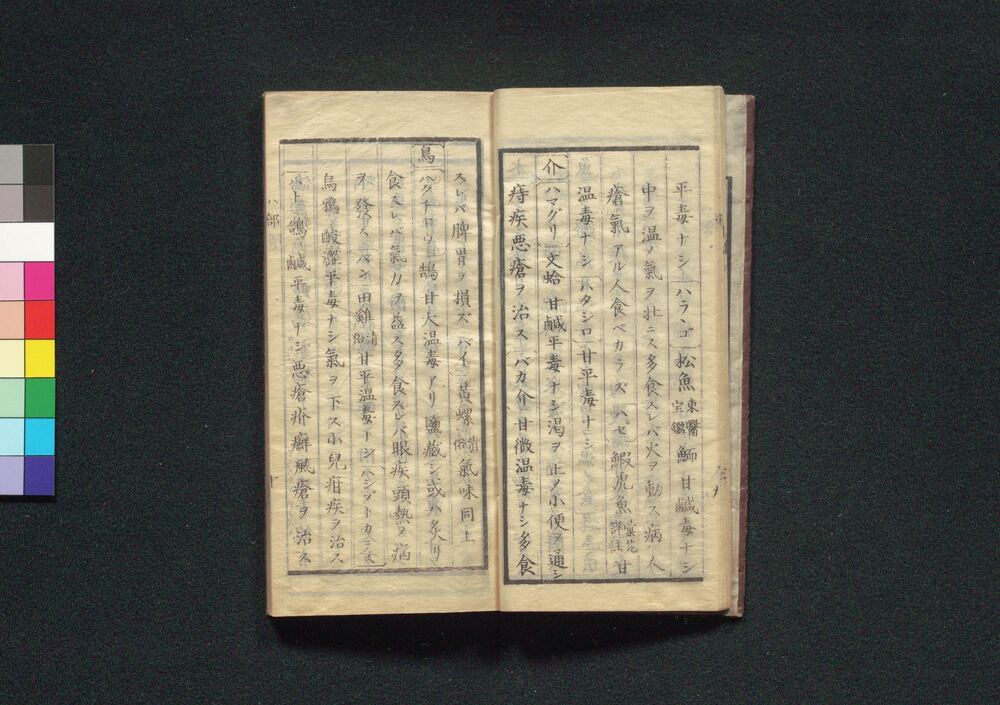 平毒ナシハラヽゴ松魚東醫宝鑑鰤甘鹹毒ナシ
中ヲ温メ氣ヲ壯ニス多食スレバ火ヲ動ス病人
瘡氣アル人食ベカラズハゼ鰕虎魚彙苑詳註甘
温毒ナシハタシロ甘平毒ナシ
介ハマグリ文蛤甘鹹平毒ナシ渇ヲ止メ小便ヲ通シ
痔疾悪瘡ヲ治スバカ介甘微温毒ナシ多食
スレバ脾胃ヲ損ズバイ黄螺清俗氣味同上
鳥ハクチヤウ鵠甘大温毒アリ鹽藏シ或ハ炙リ
食スレバ氣力ヲ益ス多食スレバ眼疾頭熱ノ病
ヲ發スバン田雞清俗甘平温毒ナシハシブトカラス
烏鴉酸澀平毒ナシ氣ヲ下ス小兒疳疾ヲ治ス
ハト鴿鹹平毒ナシ悪瘡疥癬風瘡ヲ治ス
ハ部